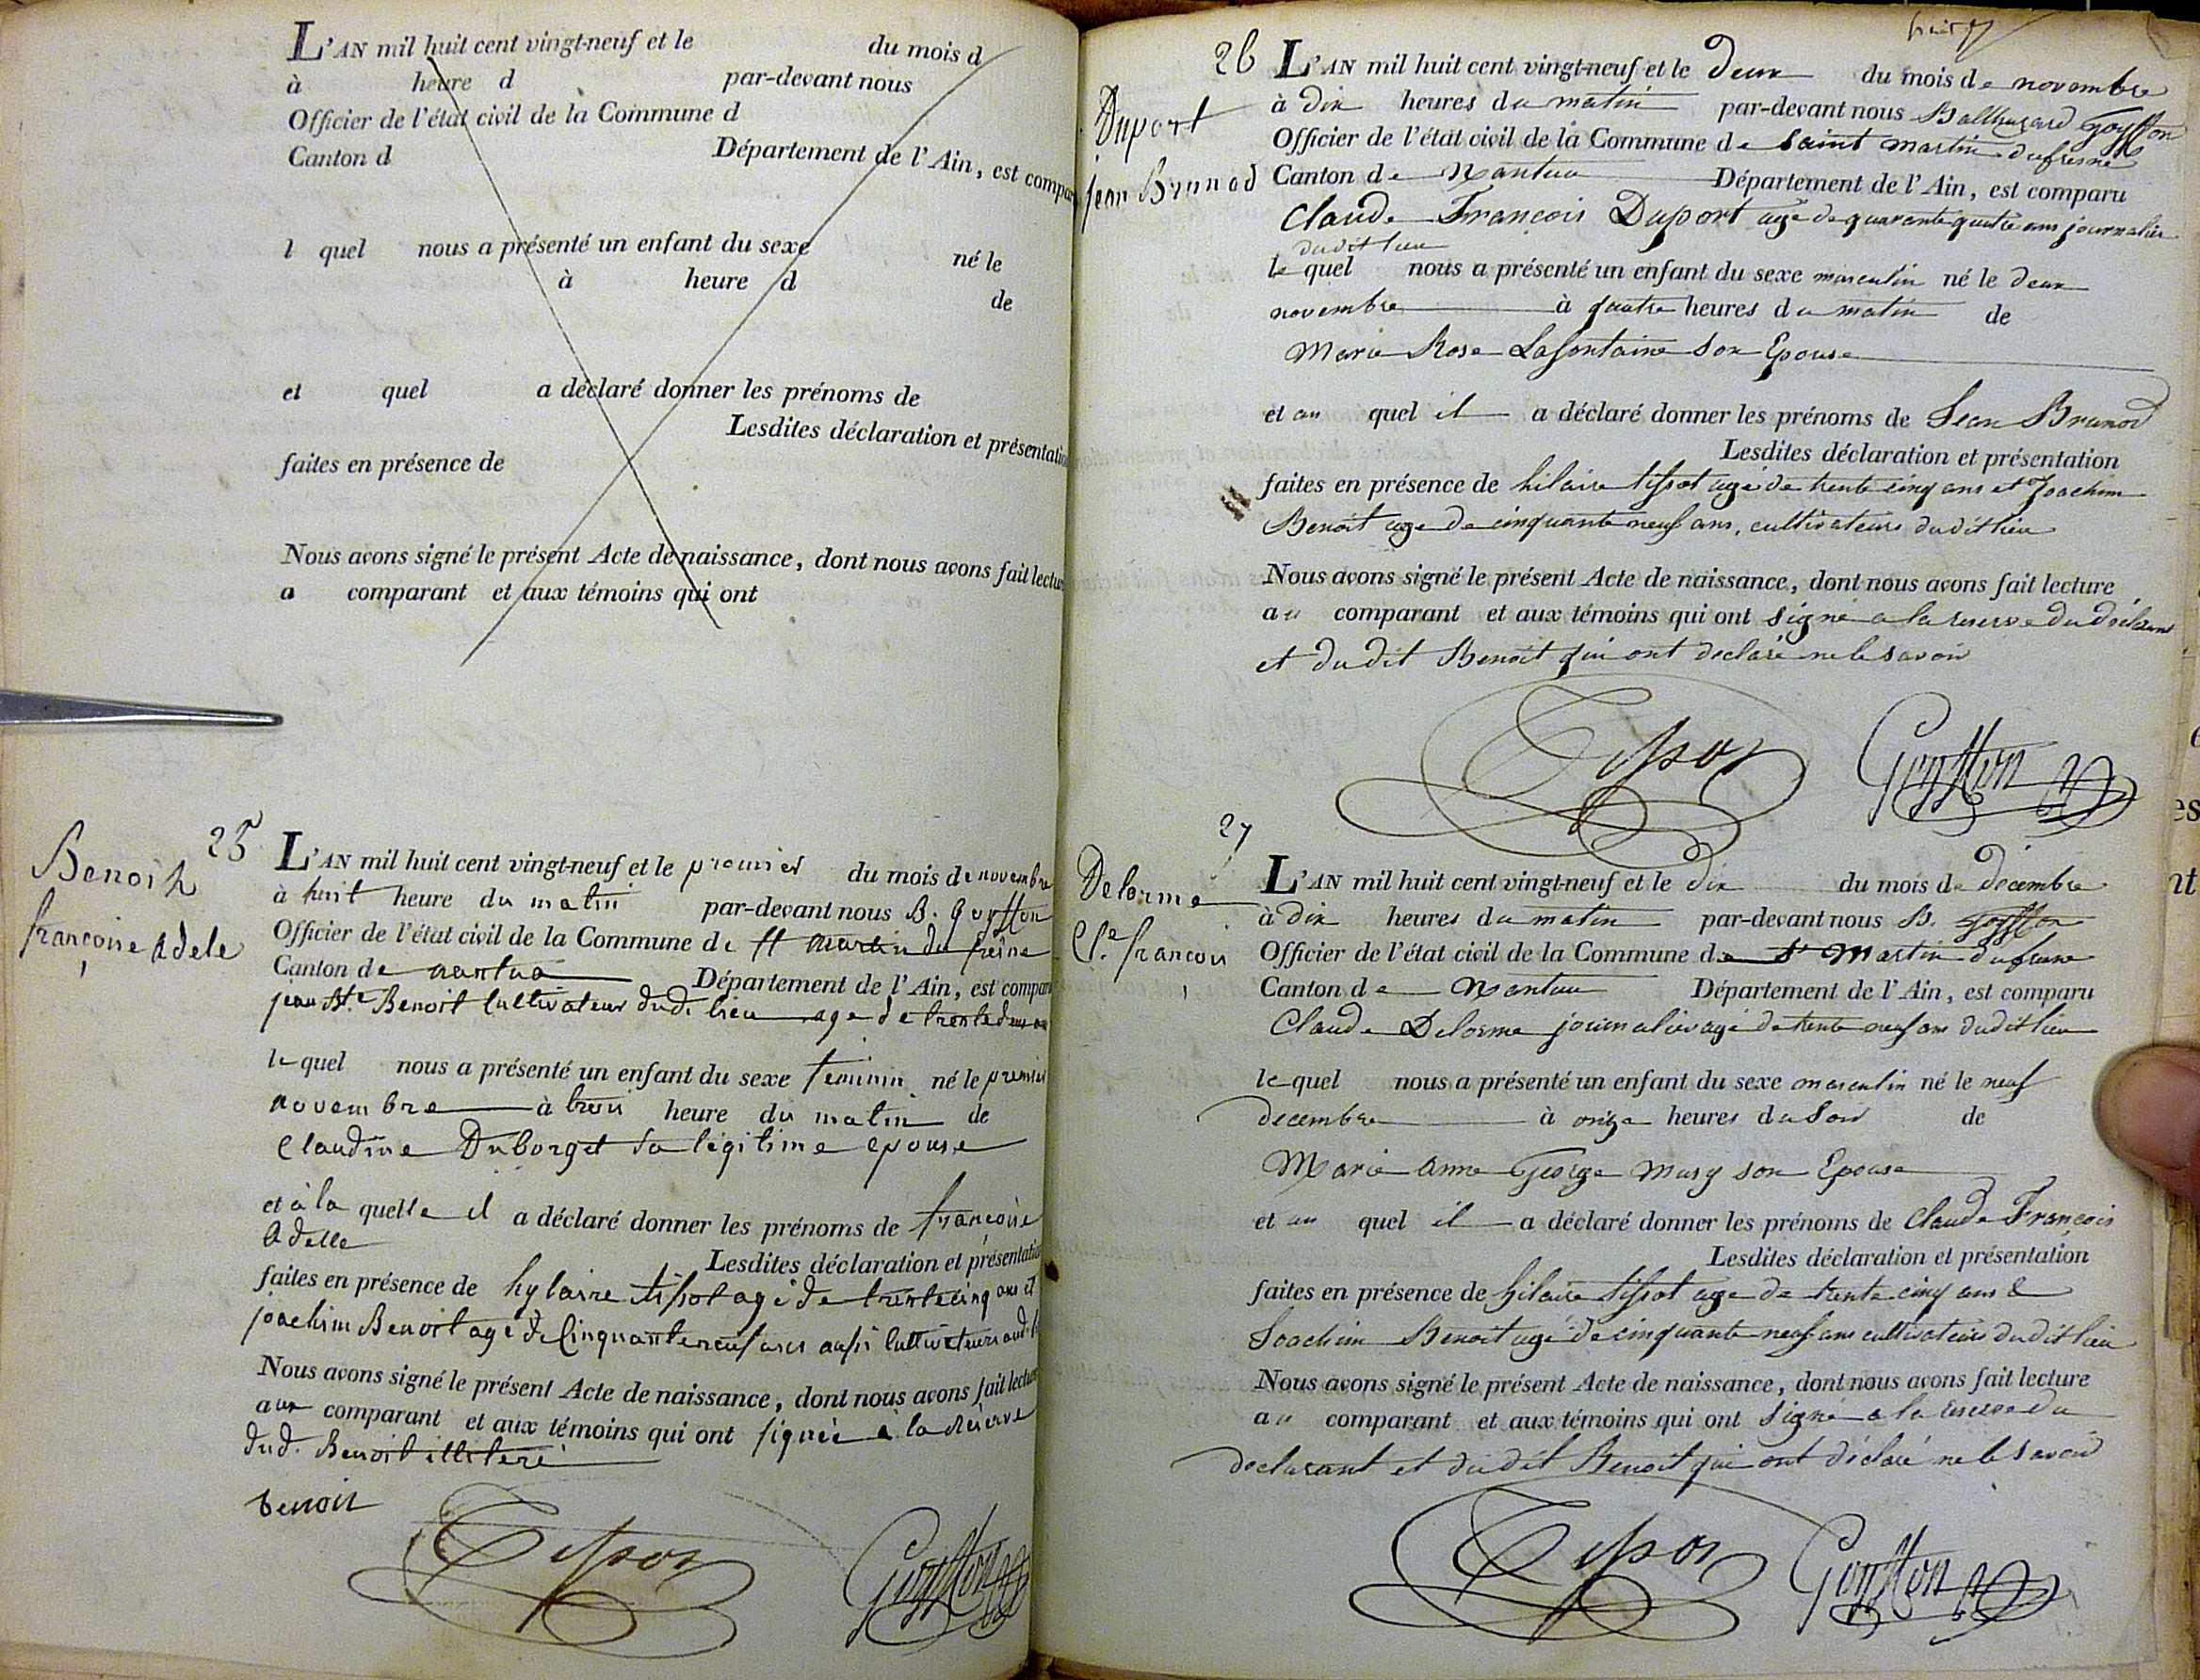 L'AN mil huit cent vingt-neuf et le du mois d
à heure d par-devant nous
Officier de l'état civil de la Commune d
Canton d Département de l'Ain, est compar
l quel nous a présenté un enfant du sexe né le
à heure d de
et quel a déclaré donner les prénoms de
Lesdites déclaration et présentation
faites en présence de
Nous avons signé le présent Acte de naissance, dont nous avons fait lecture
a comparant et aux témoins qui ont
25
Benoit
françoise Adele
L'AN mil huit cent vingt-neuf et le premier du mois de novembre
à huit heure du matin par-devant nous B. Goyffon
Officier de l'état civil de la Commune de St Martin du fresne
Canton de nantua Département de l'Ain, est compar
jean Bte Benoit Cultivateur dud. lieu age de trente deux an
le quel nous a présenté un enfant du sexe feminin né le premier
novembre à trois heure du matin de
Claudine Duborget sa légitime epouse
et à la quelle il a déclaré donner les prénoms de françoise
Adelle
Lesdites déclaration et présentation
faites en présence de hylaire tissot agé de trente cinq ans et
joachim Benoit agé de Cinquante neuf ans aussi Cultivateurs aud. l
Nous avons signé le présent Acte de naissance, dont nous avons fait lecture
aux comparant et aux témoins qui ont signée à la réserve
dud. Benoit illiteré
benoit
Tissot Goyffon
26
Duport
jean Brunod
L'AN mil huit cent vingt-neuf et le deux du mois de novembre
à dix heures du matin par-devant nous Balthazard Goyffon
Officier de l'état civil de la Commune de Saint Martin dufresne
Canton de Nantua Département de l'Ain, est comparu
Claude François Duport agé de quarante quatre ans journalier
dudit lieu
le quel nous a présenté un enfant du sexe masculin né le deux
novembre à quatre heures du matin de
Marie Rose Lafontaine son Epouse
et au quel il a déclaré donner les prénoms de Jean Brunod
Lesdites déclaration et présentation
faites en présence de hilaire tissot agé de trente cinq ans et Joachim
Benoit age de cinquante neuf ans, cultivateurs dudit lieu
Nous avons signé le présent Acte de naissance, dont nous avons fait lecture
au comparant et aux témoins qui ont signé a la reserve du déclarant
et du dit Benoit qui ont declaré ne le savoir
Tissot Goyffon
27
Delorme
Cde françois
L'AN mil huit cent vingt-neuf et le dix du mois de décembre
à dix heures du matin par-devant nous B. Goyffon
Officier de l'état civil de la Commune de St Martin dufresne
Canton de Nantua Département de l'Ain, est comparu
Claude Delorme journalier agé de trente neuf ans dudit lieu
le quel nous a présenté un enfant du sexe masculin né le neuf
decembre à onze heures du Soir de
Marie Anne George Mury son Epouse
et au quel il a déclaré donner les prénoms de Claude François
Lesdites déclaration et présentation
faites en présence de hilaire tissot age de trente cinq ans &
Joachim Benoit agé de cinquante neuf ans cultivateurs dudit lieu
Nous avons signé le présent Acte de naissance, dont nous avons fait lecture
au comparant et aux témoins qui ont signé a la reserve du
declarant et du dit Benoit qui ont déclaré ne le savoir
Tissot Goyffon